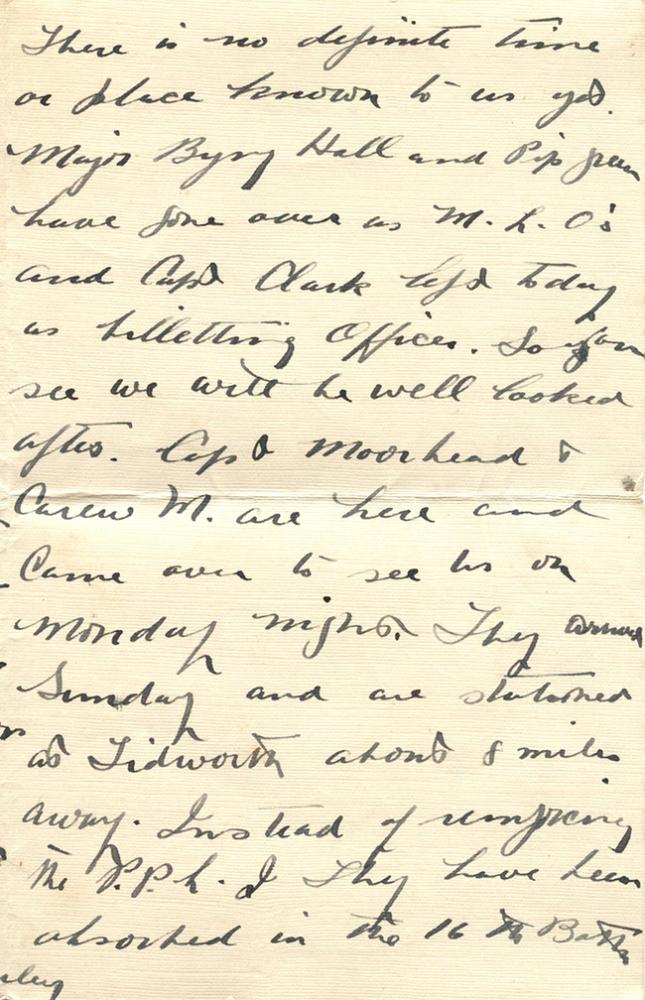 There is no definite time
or place known to us yet.
Major Byng Hall and Pip
have gone over as M. L. O's
and Capt Clark left today
as billetting Officer. So you
see we will be well looked
after. Capt Moorhead &
Carew M. are here and
came over to see us on
Monday night. They arrived
Sunday and are stationed
at Tidworth about 8 miles
away. Instead of reinforcing
the P.P.L.I they have been
absorbed in the 16th Battn